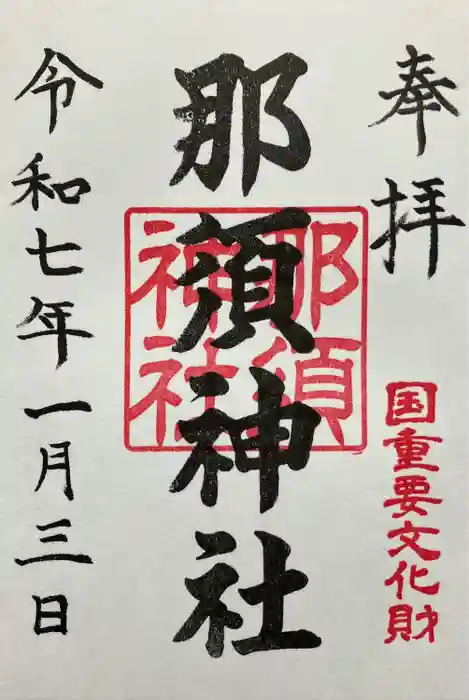 奉拝
国重要文化財
那須神社
那須
神社
令和七年一月三日